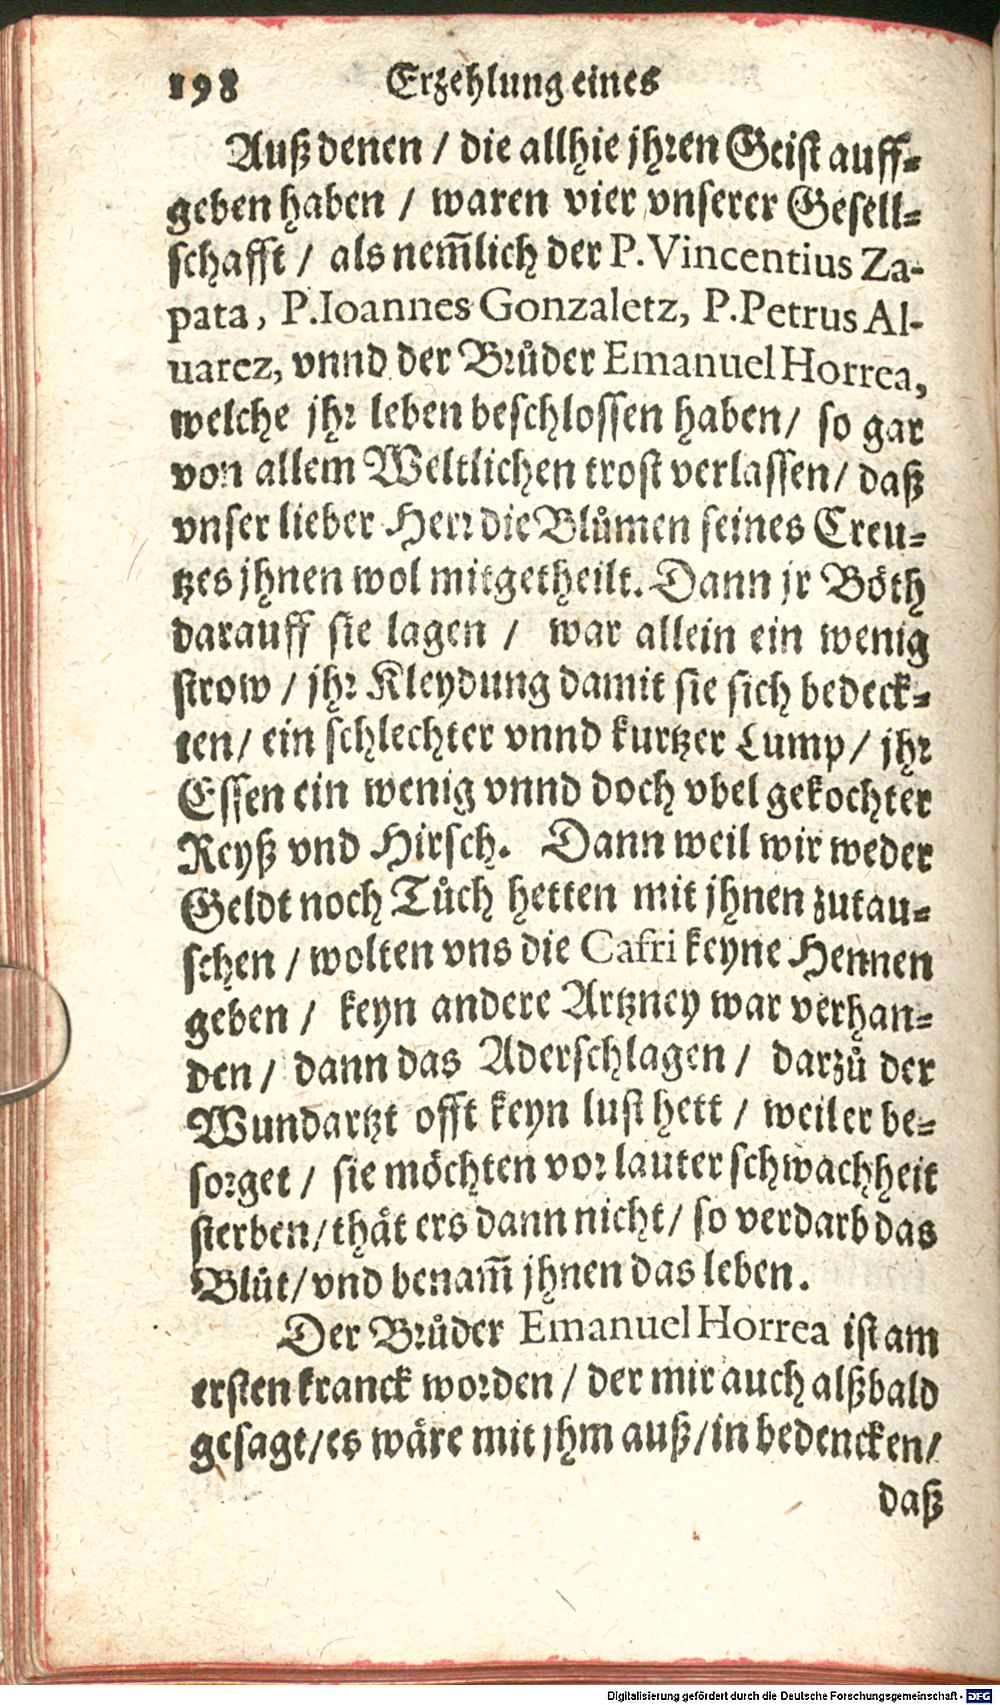 198 Erzehlung eines
Auß denen / die allhie jhren Geist auff-
geben haben / waren vier vnserer Gesell-
schafft / als nem̃lich der P. Vincentius Za-
pata, P. Ioannes Gonzaletz, P. Petrus Al-
uarez, vnnd der Brůder Emanuel Horrea,
welche jhr leben beschlossen haben / so gar
von allem Weltlichen trost verlassen / daß
vnser lieber Herr die Blůmen seines Creu-
tzes jhnen wol mitgetheilt. Dann jr Böth
darauff sie lagen / war allein ein wenig
strow / jhr Kleydung damit sie sich bedeck-
ten / ein schlechter vnnd kurtzer Lump / jhr
Essen ein wenig vnnd doch vbel gekochter
Reyß vnd Hirsch. Dann weil wir weder
Geldt noch Tůch hetten mit jhnen zutau-
schen / wolten vns die Cafri keyne Hennen
geben / keyn andere Artzney war verhan-
den / dann das Aderschlagen / darzů der
Wundartzt offt keyn lust hett / weil er be-
sorget / sie möchten vor lauter schwachheit
sterben / thät ers dann nicht / so verdarb das
Blůt / vnd benam̃ jhnen das leben.
Der Brůder Emanuel Horrea ist am
ersten kranck worden / der mir auch alßbald
gesagt / es wäre mit jhm auß / in bedencken /
daß
Digitalisierung gefördert durch die Deutsche Forschungsgemeinschaft - DFG